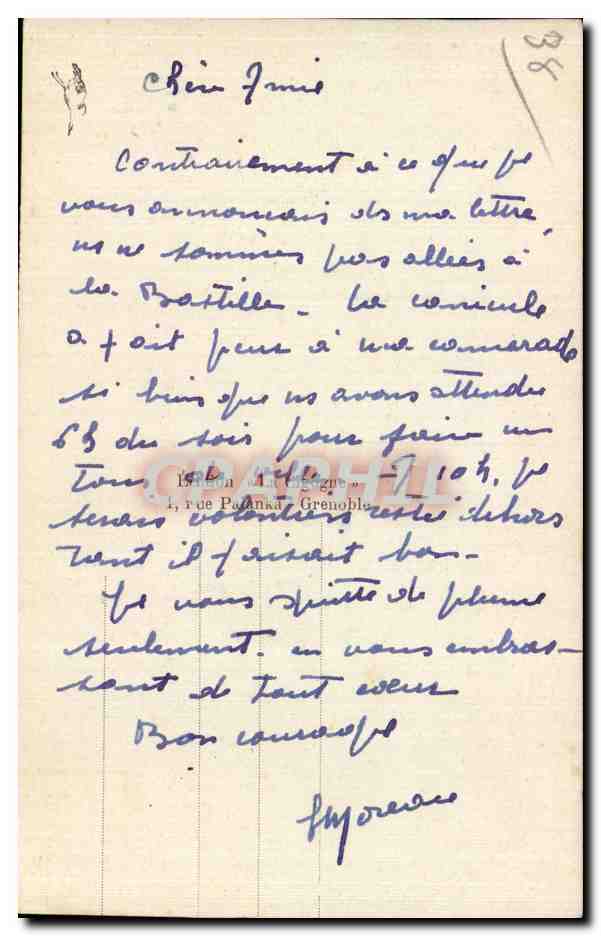 38
Chère Amie
Contrairement à ce que je
vous annonçais ds ma lettre,
ns ne sommes pas allées à
la Bastille. La canicule
a fait peur à ma camarade
si bien que ns avons attendu
6h du soir pour faire un
tour de ville. A 10h, je
Edition "La Cigogne"
CPARHIL
1, rue Palanka, Grenoble
serais volontiers restée dehors
tant il faisait bon.
Je vous quitte de plume
seulement en vous embras-
sant de tout cœur
Bon courage
Moreau